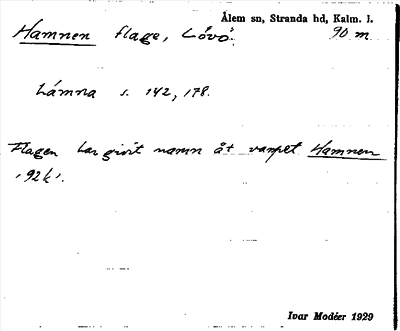 Ålem sn, Stranda hd, Kalm. l.
Hamnen flage, Lövö. 90 m.
Lámna s. 142, 178.
Flagen har givit namn åt varpet Hamnen
, 92k'.
Ivar Modéer 1929